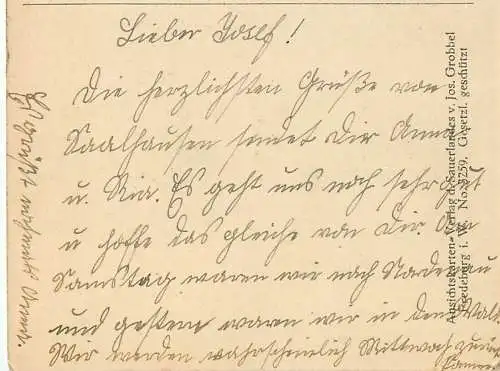 Lieber Josef!
Die herzlichsten Grüße von
Saalhausen sendet Dir Anna
u. Ria. Es geht uns noch sehr gut
u hoffe das gleiche von Dir. Am
Samstag waren wir nach
und gestern waren wir in dem Wald
Wir werden wahrscheinlich Mittwoch zurück
kommen
Es grüßt nochmals Anna.
Ansichtskarten-Verlag des Sauerlandes v. Jos. Grobbel
Fredeburg i. W. No. 3259. Gesetzl. geschützt